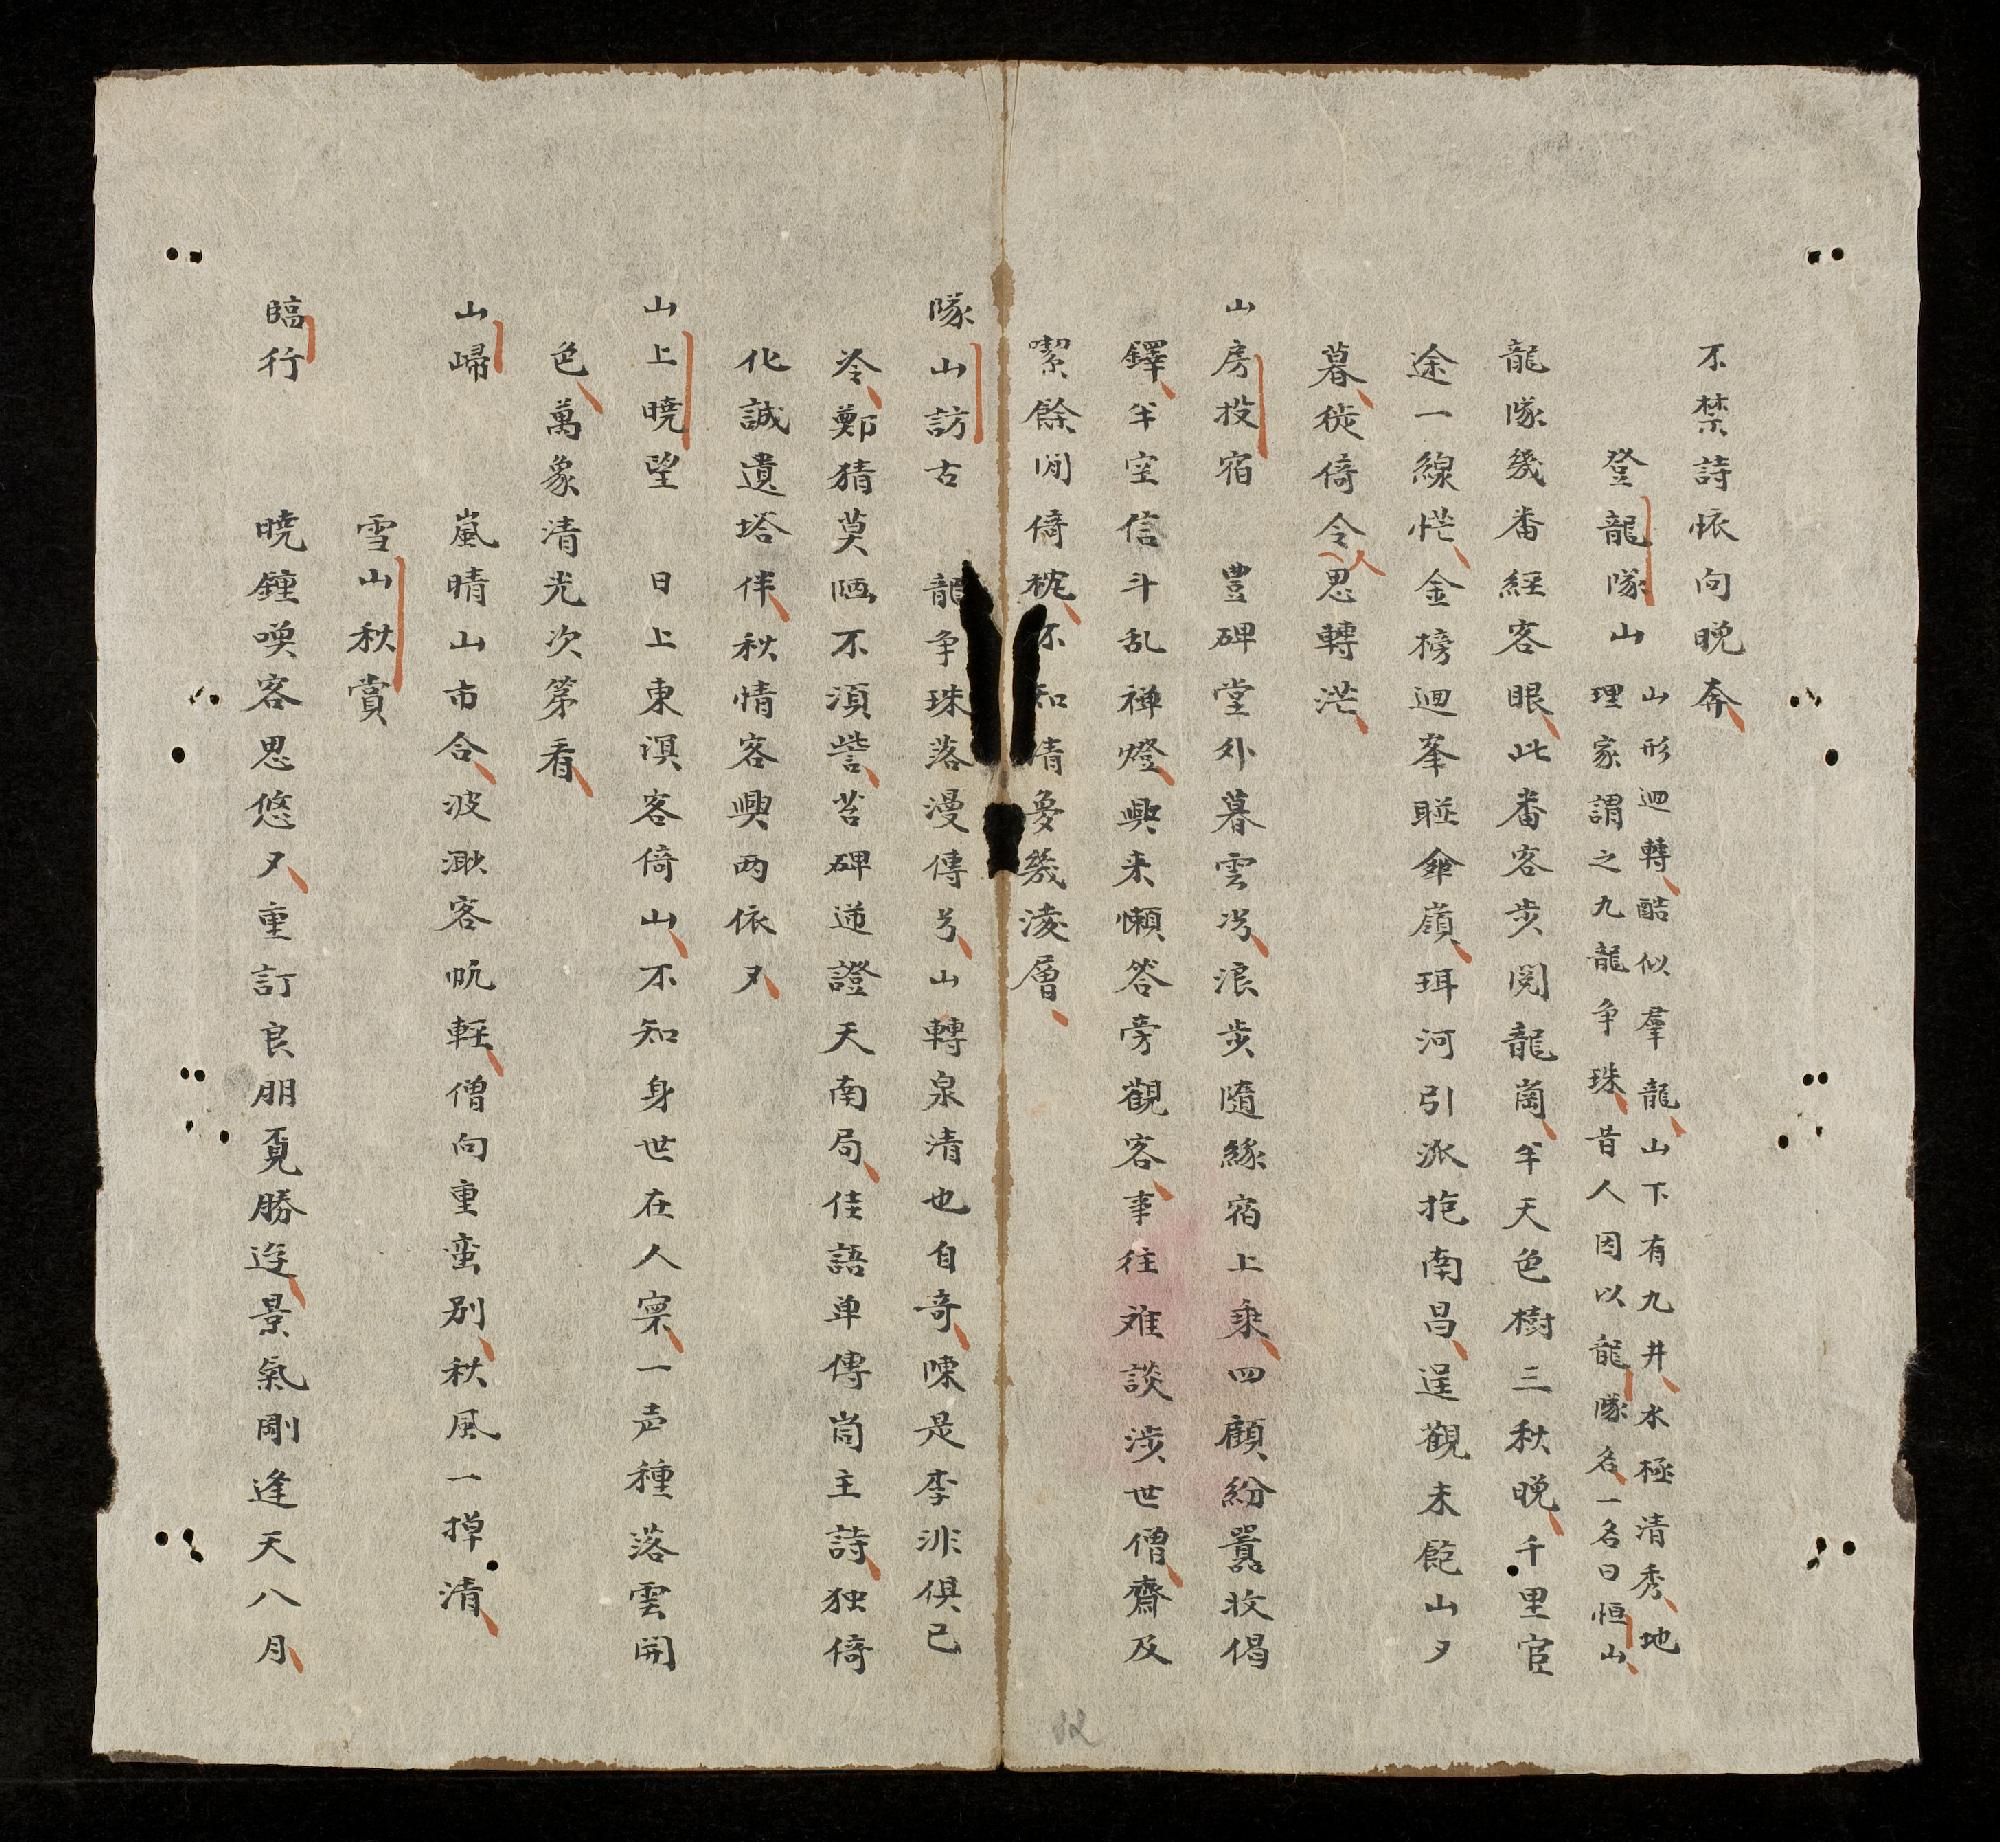 不禁詩懷向晚奔
登龍隊山
山形迴轉酷似羣龍山下有九井水極清秀地
理家謂之九龍争珠昔人因以龍隊名一名曰恒山
龍隊幾番經客眼此番客步閱龍崗半天色樹三秋晚千里宦
途一線忙金榜迴峯𥋓傘嶺珥河引派抱南昌逞觀未飽山夕
暮徙倚令人思轉茫
山房投宿　豊碑堂外暮雲凝浪步隨緣宿上乘四顧紛囂收偈
鐸半空信斗乱禅燈興来懶答旁觀客事往难談涉世僧齋及
喫餘閒倚枕不知清夢幾淩層
隊山訪古　龍争珠落漫傳兮山轉泉清也自奇陳是李非俱已
冷鄭猜莫陋不須訾苔碑遊證天南局佳語单傳尚主詩独倚
化誠遺塔伴秋情客興两依夕
山上曉望　日上東溟客倚山不知身世在人寰一声種落雲開
色萬象清光次第看
山歸　嵐晴山市合波溆客帆輕僧向重蛮别秋風一掉清
雪山秋賞
臨行　曉鍾喚客思悠夕重訂良朋覔勝遊景氣剛逢天八月